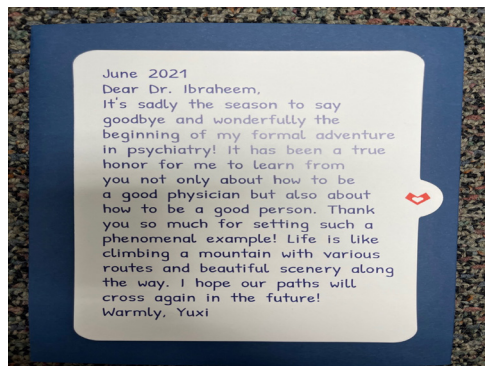 June 2021
Dear Dr. Ibraheem,
It's sadly the season to say
goodbye and wonderfully the
beginning of my formal adventure
in psychiatry! It has been a true
honor for me to learn from
you not only about how to be
a good physician but also about
how to be a good person. Thank
you so much for setting such a
phenomenal example! Life is like
climbing a mountain with various
routes and beautiful scenery along
the way. I hope our paths will
cross again in the future!
Warmly, Yuxi